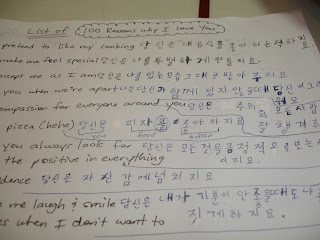 List of 100 Reasons why I love You
pretend to like my cooking 당신은 내 음식을 좋아하는척 하지요.
make me feel special 당신은 나를 특별하게 만들지요.
accept me as I am 당신은 나를 있는 모습 그대로 받아 주지요
you when we're apart 나는 당신과 함께 있지 않을때 당신이 그리워요
compassion for everyone around you 당신은 주위 모든 사람
pizza (hehe) 당신은 피자를 좋아하지요 잘 챙겨
you food
you always look for 당신은 모든것을 긍정적으로 보는
the positive in everything 지요.
dence 당신은 자신감에 넘치지요
me laugh & smile 당신은 내가 기분이 안 좋을때도 나
s when I don't want to 짓게하지요.